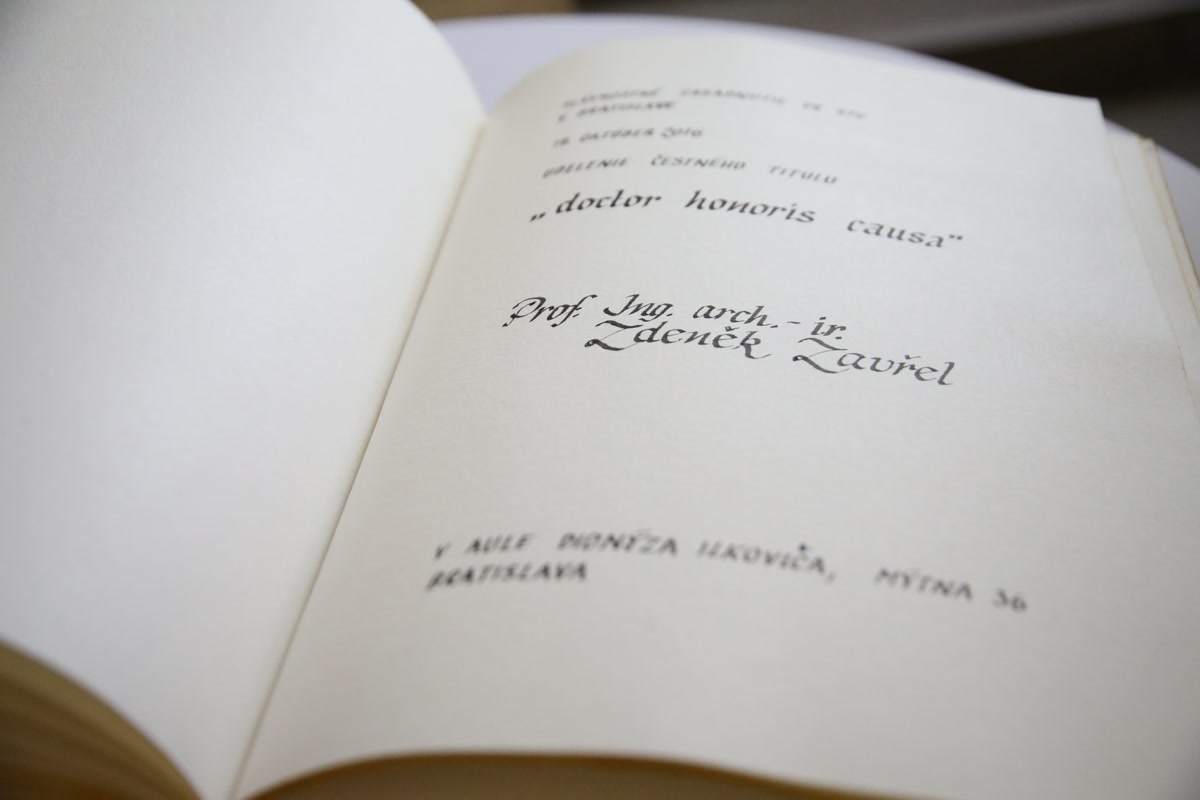 SLÁVNOSTNÉ ZASADNUTIE VR STU
V BRATISLAVE
OKTÓBER 2016
UDELENIE ČESTNÉHO TITULU
„doctor honoris causa“
Prof. Ing. arch. - ir.
Zdeněk Zavřel
V AULE DIONÝZA ILKOVIČA, MÝTNA 36
BRATISLAVA